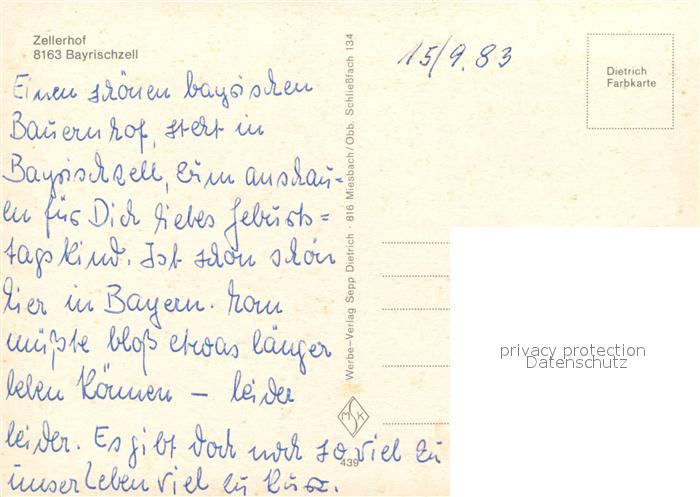 Zellerhof
8163 Bayrischzell
15/9.83
Dietrich
Farbkarte
Einen schönen bayrischen
Bauernhof, steht in
Bayrischzell, zum anschau-
en für Dich liebes Geburts=
tagskind. Ist schon schön
hier in Bayern. Man
müßte bloß etwas länger
leben können – leider
leider. Es gibt doch noch so viel zu
unser Leben viel zu kurz.
Werbe-Verlag Sepp Dietrich · 816 Miesbach/Obb. Schließfach 134
MSK
439
privacy protection
Datenschutz